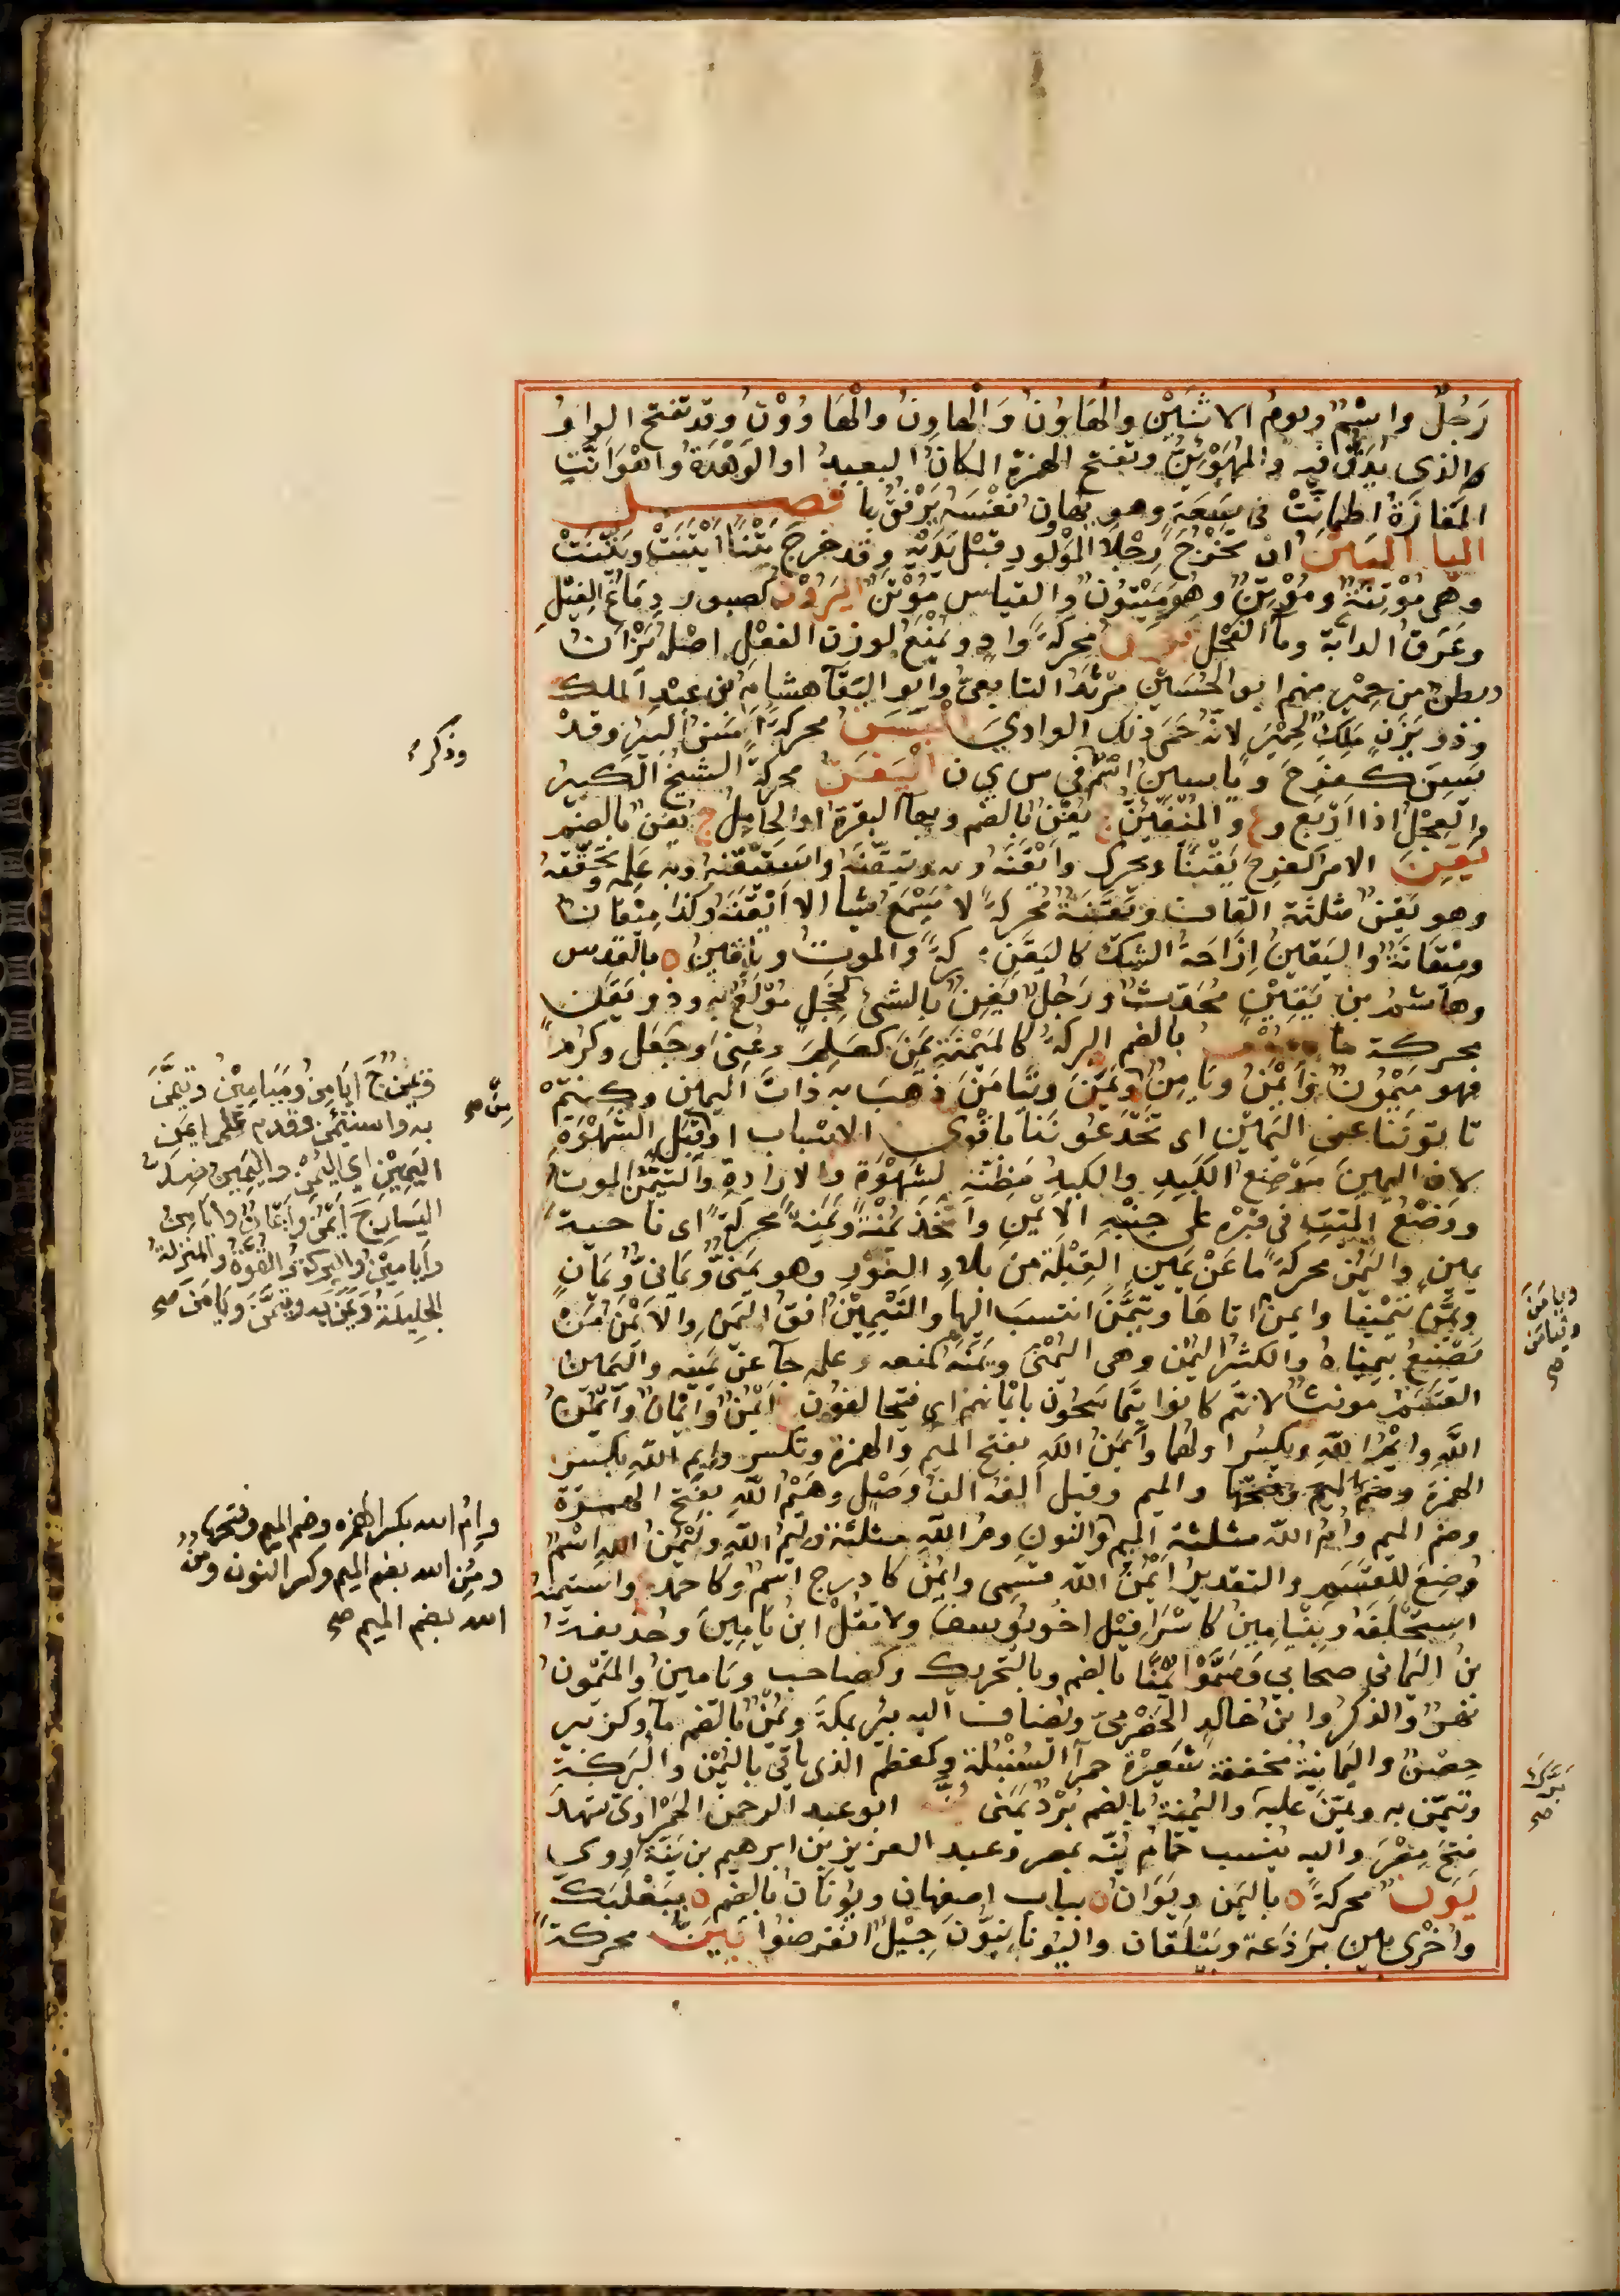 رَجُلٌ واسْمٌ ويومُ الاثنَيْنِ والهَاوَنُ والهاوُنُ والهَاوُوْنُ وقد تفتح الواوُ
الذى يُدَقُّ فيه والمُهْوَئِنُّ وتفتح الهمزة المكانُ البعيدُ او الوَهْدَةُ واهْوَأَنَّتِ
المَفَازَةُ اطمأنَّتْ فى سَعَةٍ وهو يهاون نفسَهُ يَرْفُقُ بها فصل
اليا اليَتْنُ ان تَخْرُجَ رِجْلَا المَوْلودِ قبْلَ يَدَيْهِ وقد خرج يَتْنًا ايْتَنَتْ ويَتَّنَتْ
وهى مُوْتِنَةٌ ومُوْتِنٌ وهو مَيْتُونٌ والقياس مُوْتَنٌ اليَرُوْنُ كصبور دِمَاغُ الفِيْلِ
وعَرَقُ الدابة وماُ الفَحْلِ يَزَنُ محركةً وادٍ ويُمْنَعُ لوزن الفعْلِ اصْلُه يَزْأَنُ
وبطنٌ من حِمْيَر منهم ابو الحُسَيْن مَرْثَدُ التابعىُّ وابو البَقَآ هشام بن عبْدِ الملك
وذو يَزَنٍ مَلِكٌ لحِمْيَرَ لانّه حَمَى ذلك الوادىَ اليَسَنُ محركةً أَسَنُ البِيْرِ وقد
يَسِنَ كفرِحَ وياسين اسْمٌ فى س ى ن اليَفَنُ محركةً الشيخُ الكبيرُ
والعِجْلُ اذا ارْبَعَ و ع والمُتَفَنِّنُ ج يُفْنٌ بالضم وبهآ البقرةُ او الحامِلُ ج يُفْنٌ بالضم
يَقِنَ الامرَ كفرِحَ يَقْنًا ويحرك وايْقَنَهُ وبه وتيَقَّنَهُ واسْتَيْقَنَه وبه عَلِمَه وتحَقَّقَه
وهو يَقنٌ مثلثة القاف ويَقَنَةٌ محركةً لا يَسْمَعُ شيأ الا ايْقَنَه وكذا مِيْقانٌ
ومِيْقَانَةٌ واليَقينُ اِزَاحَةُ الشك كاليَقَنِ محركةً والموتُ ويقين ه بالقدس
وهاشمُ بن يَقِيْنٍ مُحَدّثٌ ورَجُلٌ يَقِنٌ بالشئ كخجِلٍ مُوْلَعٌ به وذو يَقَنٍ
محركة ما اليُمْنُ بالضم البركةُ كالمَيْمَنَةِ يَمَنَ كعَلِمَ وعُنِىَ وجَعَل وكَرُمَ
فهو مَيْمُونٌ وأَيْمَنُ ويَامِنٌ وتَيَمَّنَ وتيَامَنَ ذهَبَ به ذاتَ اليمين وكنتمْ
تاتونَنا عنِ اليَمين اى تَخْدَعُونَنا باقْوَى الاسْباب او مِن قِبَلِ الشهْوَةِ
لان اليمينَ مَوْضِعُ الكَبِدِ والكبِدُ مَظِنّة لشهْوَة والارادة والتيَمُّنُ الموتُ
ووَضْعُ الميّتِ فى قبرِه على جنْبِه الأيْمَنِ وأَخَذَ يُمْنَةً ويَمَنَةً محركةً اى ناحيةَ
يمينٍ واليَمَنُ محركةً ما عَنْ يَمين القِبْلة من بلاد الغَوْرِ وهو يَمَنِىٌّ ويَمَانىٌّ ويَمانٍ
ويَمَّنَ تَيْمينًا وايمنَ اتاها وتيَمَّنَ انتسبَ اليها والتَيْمِيْنِىُّ افقُ اليَمَنِ والأيْمَنُ مَنْ
يَصْنَعُ بيمناهُ والكثيرُ اليُمْنِ وهى اليُمْنَى ويَمَنَهُ كمنعه وعلمه جآ عن يمينه واليَمين
القَسَمُ مونثٌ لانهم كانوا يتماسَحُون بايمانهم اى فيتحالفون ج أيْمُنٌ وأيْمانٌ وأيْمُنُ
اللهِ وايْمُ الله ويكسر اولهما وأَيْمَنُ الله بفتح الميم والهمزة وتكسر وإِيْمِ الله بكسر
الهمزة وضم الميم وفتحها والميم وقيل الفُه الفُ وَصْل وهَيْمُ الله بفتح الهمزة
وضم الميم وأمُ الله مثلثة الميم والنون ومُ الله مثلثة وليَمُ الله وليَمْنُ الله اسْمٌ
وُضِعَ للقَسَمِ والتقديرُ أيْمُنُ الله قسَمى وايْمُنُ كاذرح اسْمٌ وكاحمد ع واستيمنه
استحْلفَهُ وبِنْيامينُ كاسْرَافِيْل اخُو يوسف ولا تقُلْ ابنُ يَامِينَ وحُذَيفةُ
بنُ اليَمانى صحابى وسَمَّوْا يُمْنًا بالضم وبالتحريك وكصاحب ويَامينُ والمَيْمُونُ
نهرٌ والذكرُ وابنُ خالدٍ الحَضْرمِىّ ويُضافُ اليه بئرٌ بمكةَ ويُمْنٌ بالضم مآ وكزبير
حِصْنٌ واليَمانِيَةُ مخففة شَعِيرَةٌ حمرآ السُنْبُلةِ وكمعظم الذى ياتى باليُمْنِ والبَرَكة
وتيَمّن به ويَمّنَ عليه واليُمْنةُ بالضم بُرْدٌ يَمَنىٌّ يُنَّةُ ابو عبد الرحمن الحَمْرَاوىُّ شهدَ
فتحَ مِصْرَ واليه يُنسب حمّامُ يُنّةَ بمصر وعبد العزيز بن ابرهيم بن يُنَّةَ روى
يَوَنُ محركةً ه باليَمن ويَوَانُ ه بباب اصفهان ويُونَانُ بالضم ه ببَعْلَبَكَّ
واخْرَى بين بَرْذَعة وبَيْلَقان واليُونانِيّون جِيْلٌ انقرضوا يَيَنُ محركةً
وذكر
مِنْ صح
فيمن ج ايَامِنُ ومَيَامِيْنُ وتيَمَّنَ
به واستَيْمَنَ وقدم على أيمن
اليَمِيْنِ اى اليُمْن واليَمينُ ضِدُّ
اليَسارِ ج أيْمُنٌ وأَيْمَانٌ وأيَامِنُ
وأيَامِيْنُ والبركة والقوة والمنزلةُ
الجليلة ويَمَنَ به ويَمَّنَ ويَامَنَ صح
ويَامَنَ
وتيامَنَ
صح
وايْمُ الله بكسر الهمزة وضم الميم وفتحها
ومُنِ الله بضم الميم وكسر النون ومُنُ
الله بضم الميم صح
تبَرَّكَ
صح